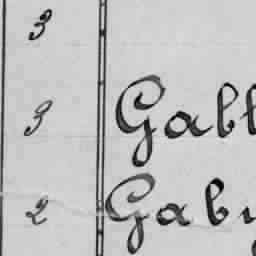 3
3 Gabl
2 Gabr